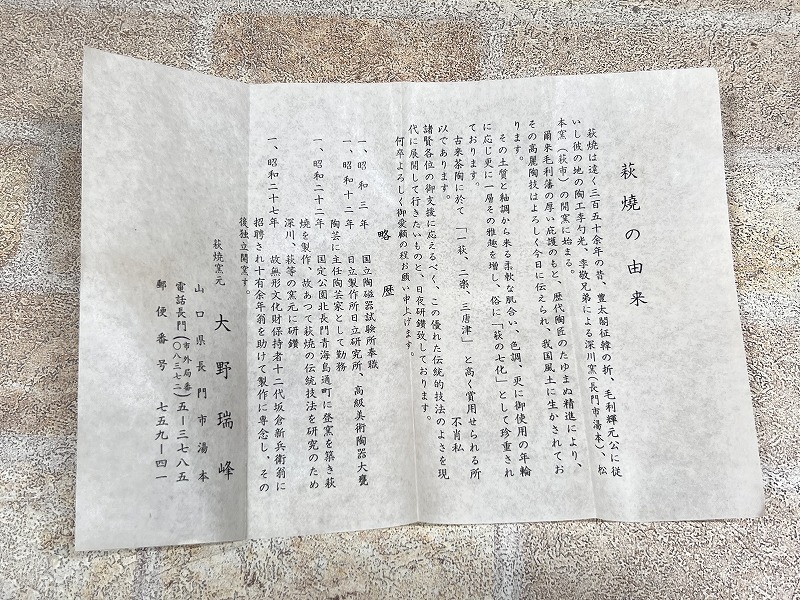 萩燒の由来
萩焼は遠く三百五十余年の昔、豊太閤征韓の折、毛利輝元公に従
いし彼の地の陶工李勺光、李敬兄弟による深川窯(長門市湯本)、松
本窯(萩市)の開窯に始まる。
爾来毛利藩の厚い庇護のもと、歴代陶匠のたゆまぬ精進により、
その高麗陶技はよろしく今日に伝えられ、我国風土に生かされてお
ります。
その土質と釉調から来る柔軟な肌合い、色調、更に御使用の年輪
に応じ更に一層その雅趣を増し、俗に「萩の七化」として珍重され
ております。
古来茶陶に於て「一萩、二楽、三唐津」と高く賞用せられる所
以であります。 不肖私
諸賢各位の御支援に応えるべく、この優れた伝統的技法のよさを現
代に展開して行きたいものと、日夜研鑽致しております。
何卒よろしく御愛顧の程お願い申上げます。
略歴
一、昭和三年 国立陶磁器試験所奉職
一、昭和十二年 日立製作所日立研究所、高級美術陶器大甕
陶芸に主任陶芸家として勤務
一、昭和二十二年 国定公園北長門青海島通町に登窯を築き萩
焼を製作、故あつて萩焼の伝統技法を研究のため
深川、萩等の窯元に研鑽
一、昭和二十七年 故無形文化財保持者十二代坂倉新兵衛翁に
招聘され十有余年翁を助けて製作に専念し、その
後独立開窯す。
萩焼窯元 大野瑞峰
山口県長門市湯本
電話長門(市外局番〇八三七二)五―三七八五
郵便番号 七五九―四一